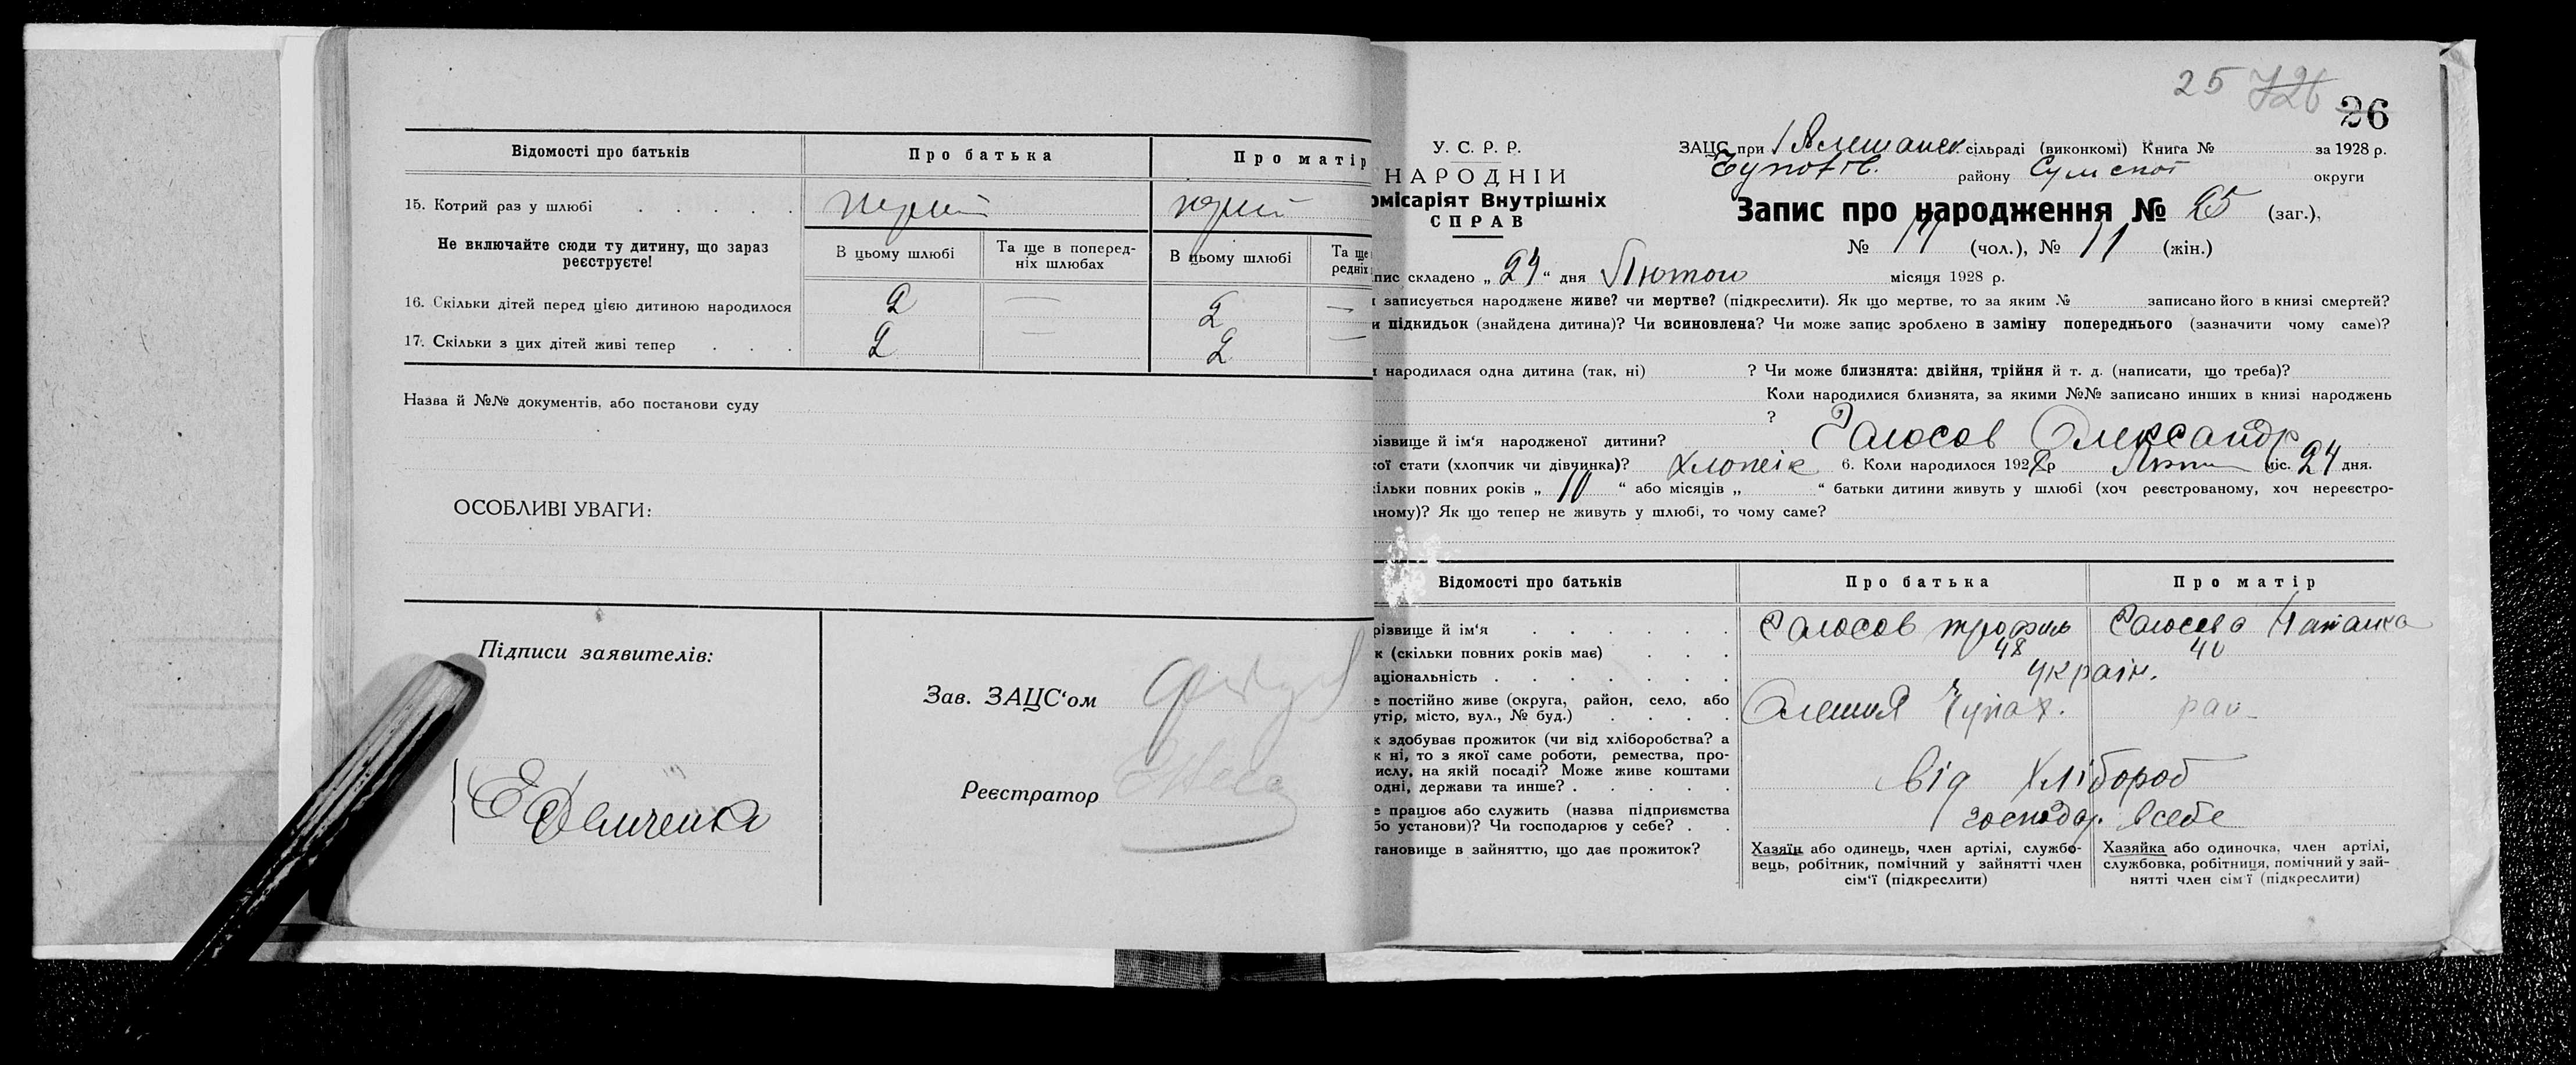 Відомості про батьків
Про батька
Про матір
15. Котрий раз у шлюбі . . . . .
Не включайте сюди ту дитину, що зараз
реєструєте!
В цьому шлюбі
Та ще в поперед-
ніх шлюбах
В цьому шлюбі
Та ще
редніх
16. Скільки дітей перед цією дитиною народилося 2 — 2 —
17. Скільки з цих дітей живі тепер . . . 2 — 2 —
Назва й №№ документів, або постанови суду
ОСОБЛИВІ УВАГИ:
Підписи заявителів:
Зав. ЗАЦС'ом
Реєстратор
25 26
У. С. Р. Р.
НАРОДНІЙ
омісаріят Внутрішніх
СПРАВ
ЗАЦС при сільраді (виконкомі) Книга № за 1928 р.
району Сумської округи
Запис про народження № 25 (заг.),
№ (чол.), № 11 (жін.)
пис складено „ 24 “ дня Лютого місяця 1928 р.
записується народжене живе? чи мертве? (підкреслити). Як що мертве, то за яким № записано його в книзі смертей?
и підкидьок (знайдена дитина)? Чи всиновлена? Чи може запис зроблено в заміну попереднього (зазначити чому саме)?
народилася одна дитина (так, ні) ? Чи може близнята: двійня, трійня й т. д. (написати, що треба)?
Коли народилися близнята, за якими №№ записано инших в книзі народжень
?
різвище й ім'я народженої дитини? Голосов Олександр
кої стати (хлопчик чи дівчинка)? 6. Коли народилося 1928 р міс. 24 дня.
кільки повних років „ 10 “ або місяців „ “ батьки дитини живуть у шлюбі (хоч реєстрованому, хоч нереєстро-
аному)? Як що тепер не живуть у шлюбі, то чому саме?
Відомості про батьків
Про батька
Про матір
різвище й ім'я . . . . . . Голосов Трофим
к (скільки повних років має) . . . 48 40
аціональність . . . . . . . україн.
е постійно живе (округа, район, село, або
утір, місто, вул., № буд.) . . . .
к здобуває прожиток (чи від хліборобства? а
к ні, то з якої саме роботи, ремества, про-
ислу, на якій посаді? Може живе коштами
одні, держави та инше? . . . . .
від хлібороб
е працює або служить (назва підприємства
бо установи)? Чи господарює у себе? . .
господар. всебе
тановище в зайняттю, що дає прожиток?
Хазяїн або одинець, член артілі, службо-
вець, робітник, помічний у зайнятті член
сім'ї (підкреслити)
Хазяйка або одиночка, член артілі,
службовка, робітниця, помічний у зай-
нятті член сім'ї (підкреслити)